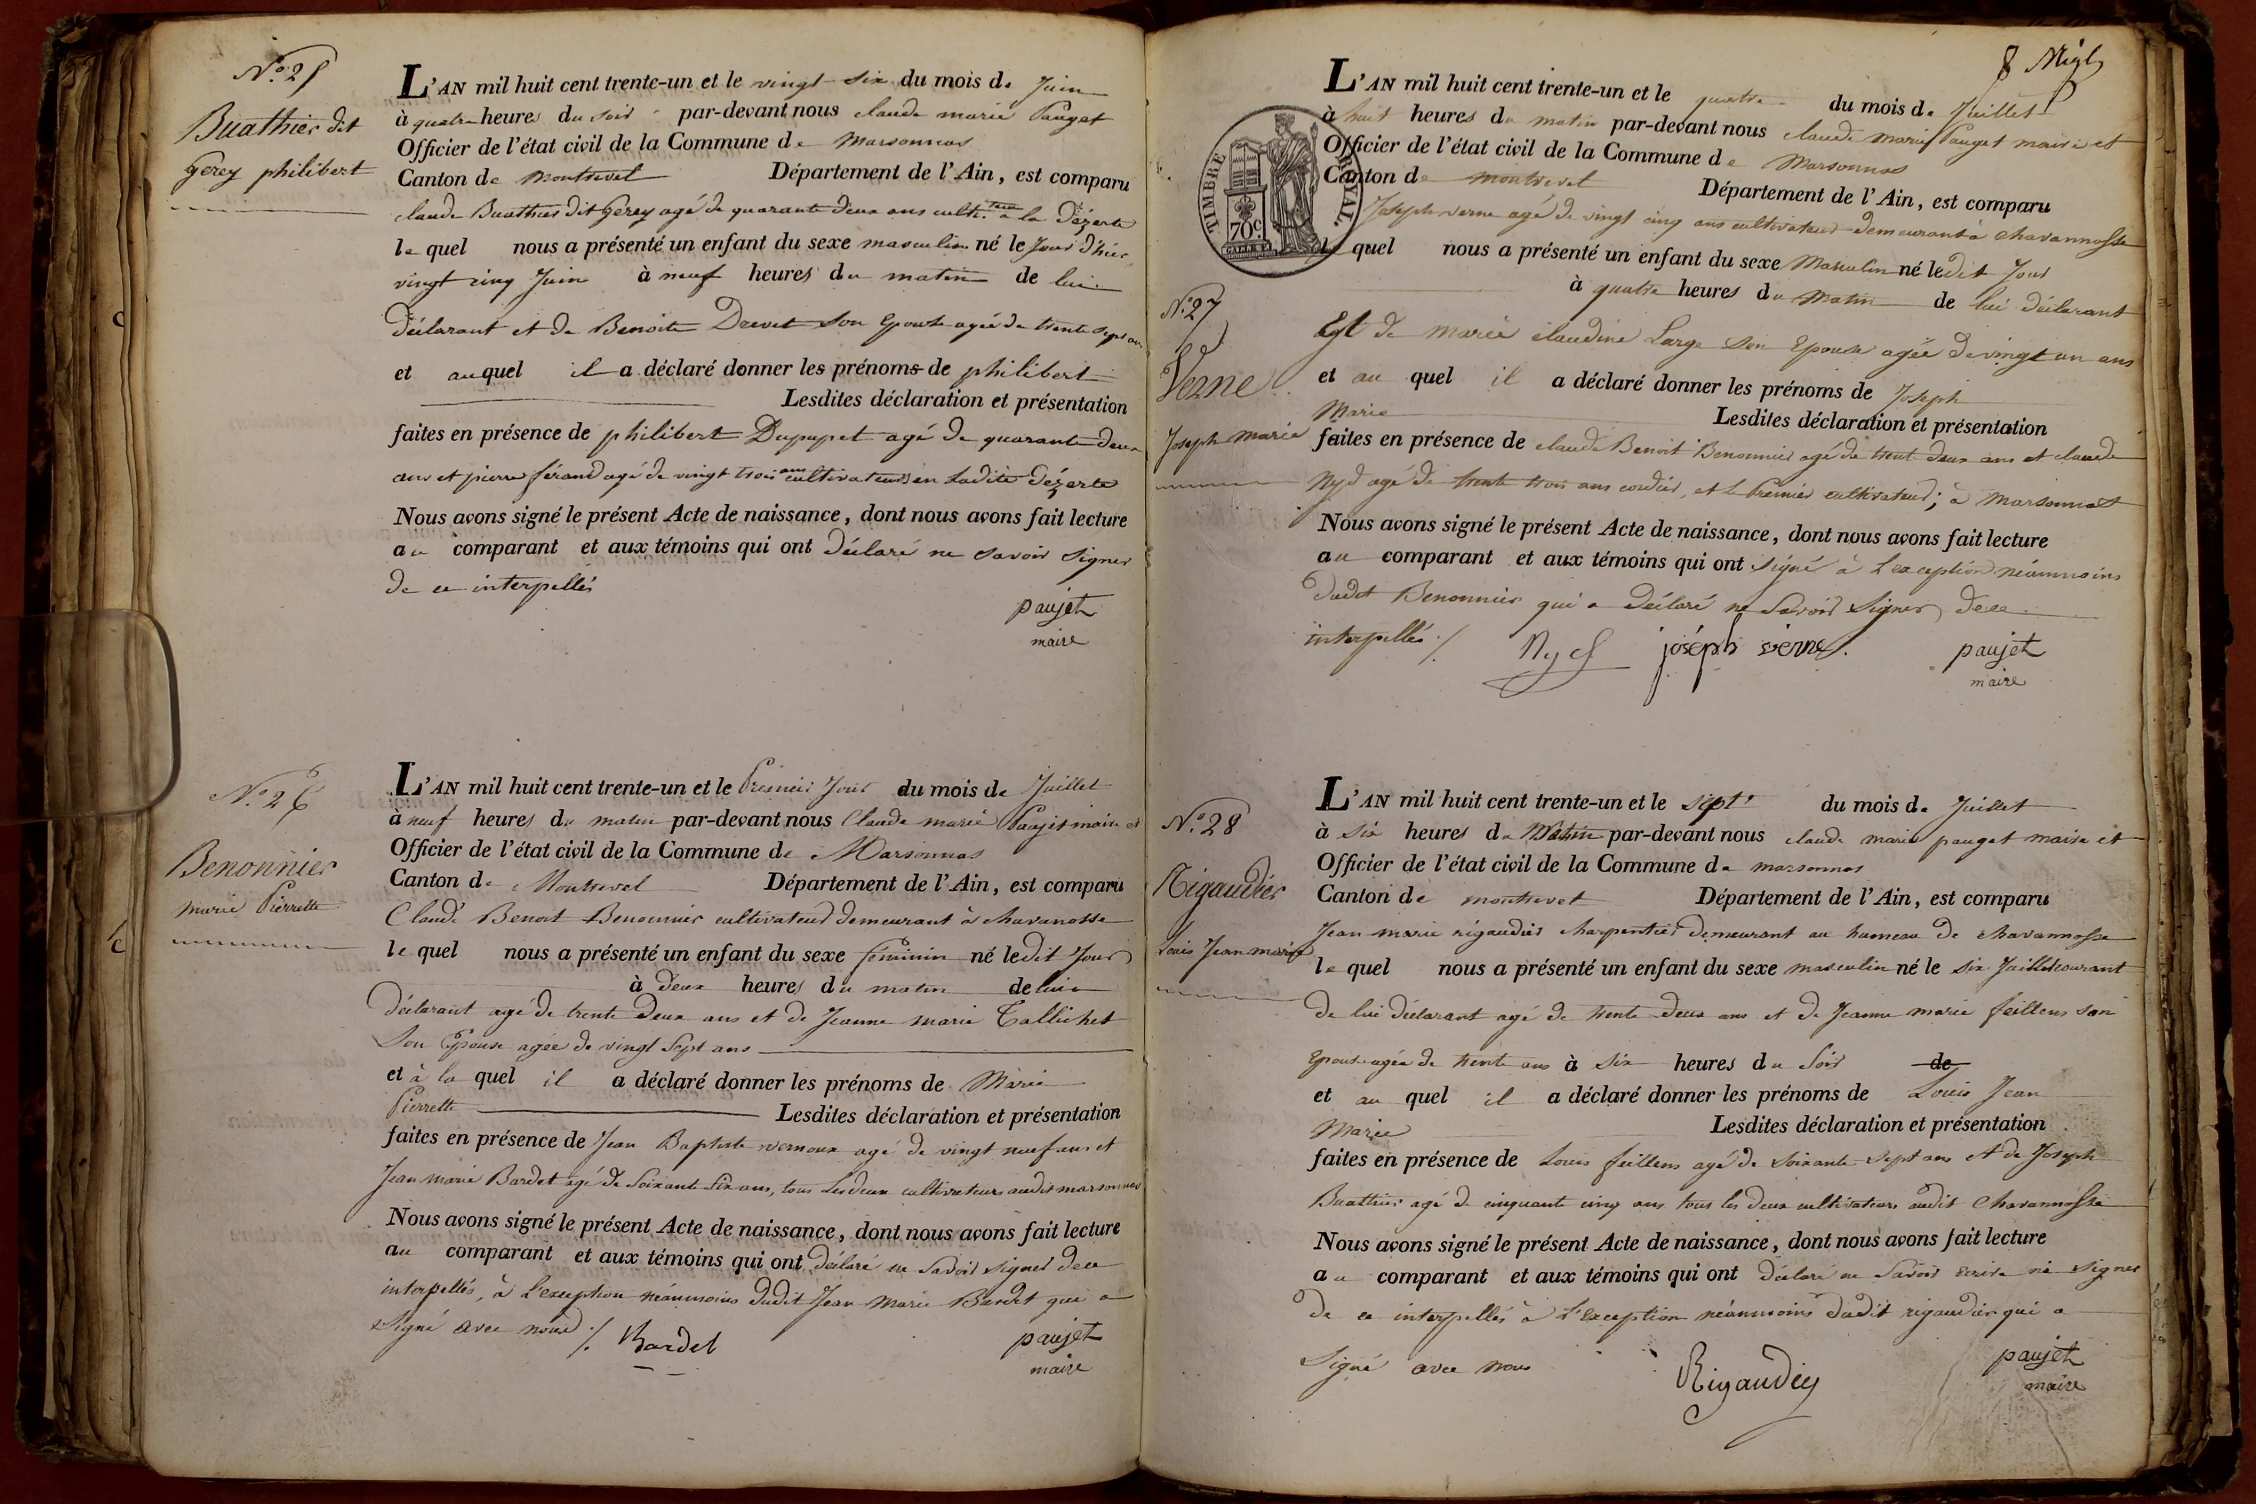 N.º 25
Buathier dit
Gerey philibert
L'AN mil huit cent trente-un et le vingt six du mois de Juin
à quatre heures du soir par-devant nous claude marie Pauget
Officier de l'état civil de la Commune de Marsonnas
Canton de Montrevel Département de l'Ain, est comparu
claude Buathier dit Gerey agé de quarante deux ans cultivateur à la dézerte
le quel nous a présenté un enfant du sexe masculin né le Jour d'hier
vingt cinq Juin à neuf heures du matin de lui
déclarant et de Benoite Drevet son Epouse agée de trente sept ans
et auquel il a déclaré donner les prénoms de philibert
Lesdites déclaration et présentation
faites en présence de philibert Dupupet agé de quarante deux
ans et pierre férand agé de vingt trois ans cultivateurs en Ladite dézerte
Nous avons signé le présent Acte de naissance, dont nous avons fait lecture
au comparant et aux témoins qui ont déclaré ne savoir signer
de ce interpellés
paujet
maire
N.º 26
Benonnier
marie Pierrette
L'AN mil huit cent trente-un et le Premier Jour du mois de Juillet
à neuf heures du matin par-devant nous Claude marie Paujet maire et
Officier de l'état civil de la Commune de Marsonnas
Canton de Montrevel Département de l'Ain, est comparu
Claude Benoit Benonnier cultivateur demeurant à chavanosse
le quel nous a présenté un enfant du sexe féminin né ledit Jour
à deux heures du matin de lui
déclarant agé de trente deux ans et de Jeanne marie Tallichet
Son Epouse agée de vingt Sept ans
et à la quel il a déclaré donner les prénoms de Marie
Pierrette Lesdites déclaration et présentation
faites en présence de Jean Baptiste vernoux agé de vingt neuf ans et
Jean marie Bardet agé de Soixante Six ans, tous Les deux cultivateurs audit marsonnas
Nous avons signé le présent Acte de naissance, dont nous avons fait lecture
au comparant et aux témoins qui ont déclaré ne Savoir signer de ce
interpellés, à L'exception néanmoins dudit Jean Marie Bardet qui a
Signé avec nous ./.
Bardet
paujet
maire
8
TIMBRE ROYAL
70c
N.º 27
Verne
Joseph marie
L'AN mil huit cent trente-un et le quatre du mois de Juillet
à huit heures du matin par-devant nous claude marie Pauget maire et
Officier de l'état civil de la Commune de Marsonnas
Canton de montrevel Département de l'Ain, est comparu
Joseph verne agé de vingt cinq ans cultivateur demeurant à chavannosse
le quel nous a présenté un enfant du sexe Masculin né ledit Jour
à quatre heures du Matin de lui déclarant
Et de marie claudine Large son Epouse agée de vingt un ans
et au quel il a déclaré donner les prénoms de Joseph
Marie Lesdites déclaration et présentation
faites en présence de claude Benoit Benonnier agé de trente deux ans et claude
Nyd agé de trente trois ans cordier, et le Premier cultivateur; à marsonnas
Nous avons signé le présent Acte de naissance, dont nous avons fait lecture
au comparant et aux témoins qui ont signé à L'exception néanmoins
dudit Benonnier qui a déclaré ne Savoir Signer de ce
interpellés ./.
Nyd joséph verne
paujet
maire
N.º 28
Rigaudier
Louis Jean marie
L'AN mil huit cent trente-un et le sept du mois de Juillet
à six heures du Matin par-devant nous claude marie pauget maire et
Officier de l'état civil de la Commune de marsonnas
Canton de montrevel Département de l'Ain, est comparu
Jean marie rigaudier charpentier demeurant au hameau de chavannosse
le quel nous a présenté un enfant du sexe masculin né le six Juillet courant
de lui déclarant agé de trente deux ans et de Jeanne marie feillens son
Epouse agée de trente ans à six heures du Soir de
et au quel il a déclaré donner les prénoms de Louis Jean
Marie Lesdites déclaration et présentation
faites en présence de Louis feillens agé de soixante sept ans et de Joseph
Buathier agé de cinquante cinq ans tous les deux cultivateurs audit Chavannosse
Nous avons signé le présent Acte de naissance, dont nous avons fait lecture
au comparant et aux témoins qui ont déclaré ne Savoir écrire ni signer
de ce interpellés à L'exception néanmoins dudit rigaudier qui a
Signé avec nous
Rigaudier
paujet
maire